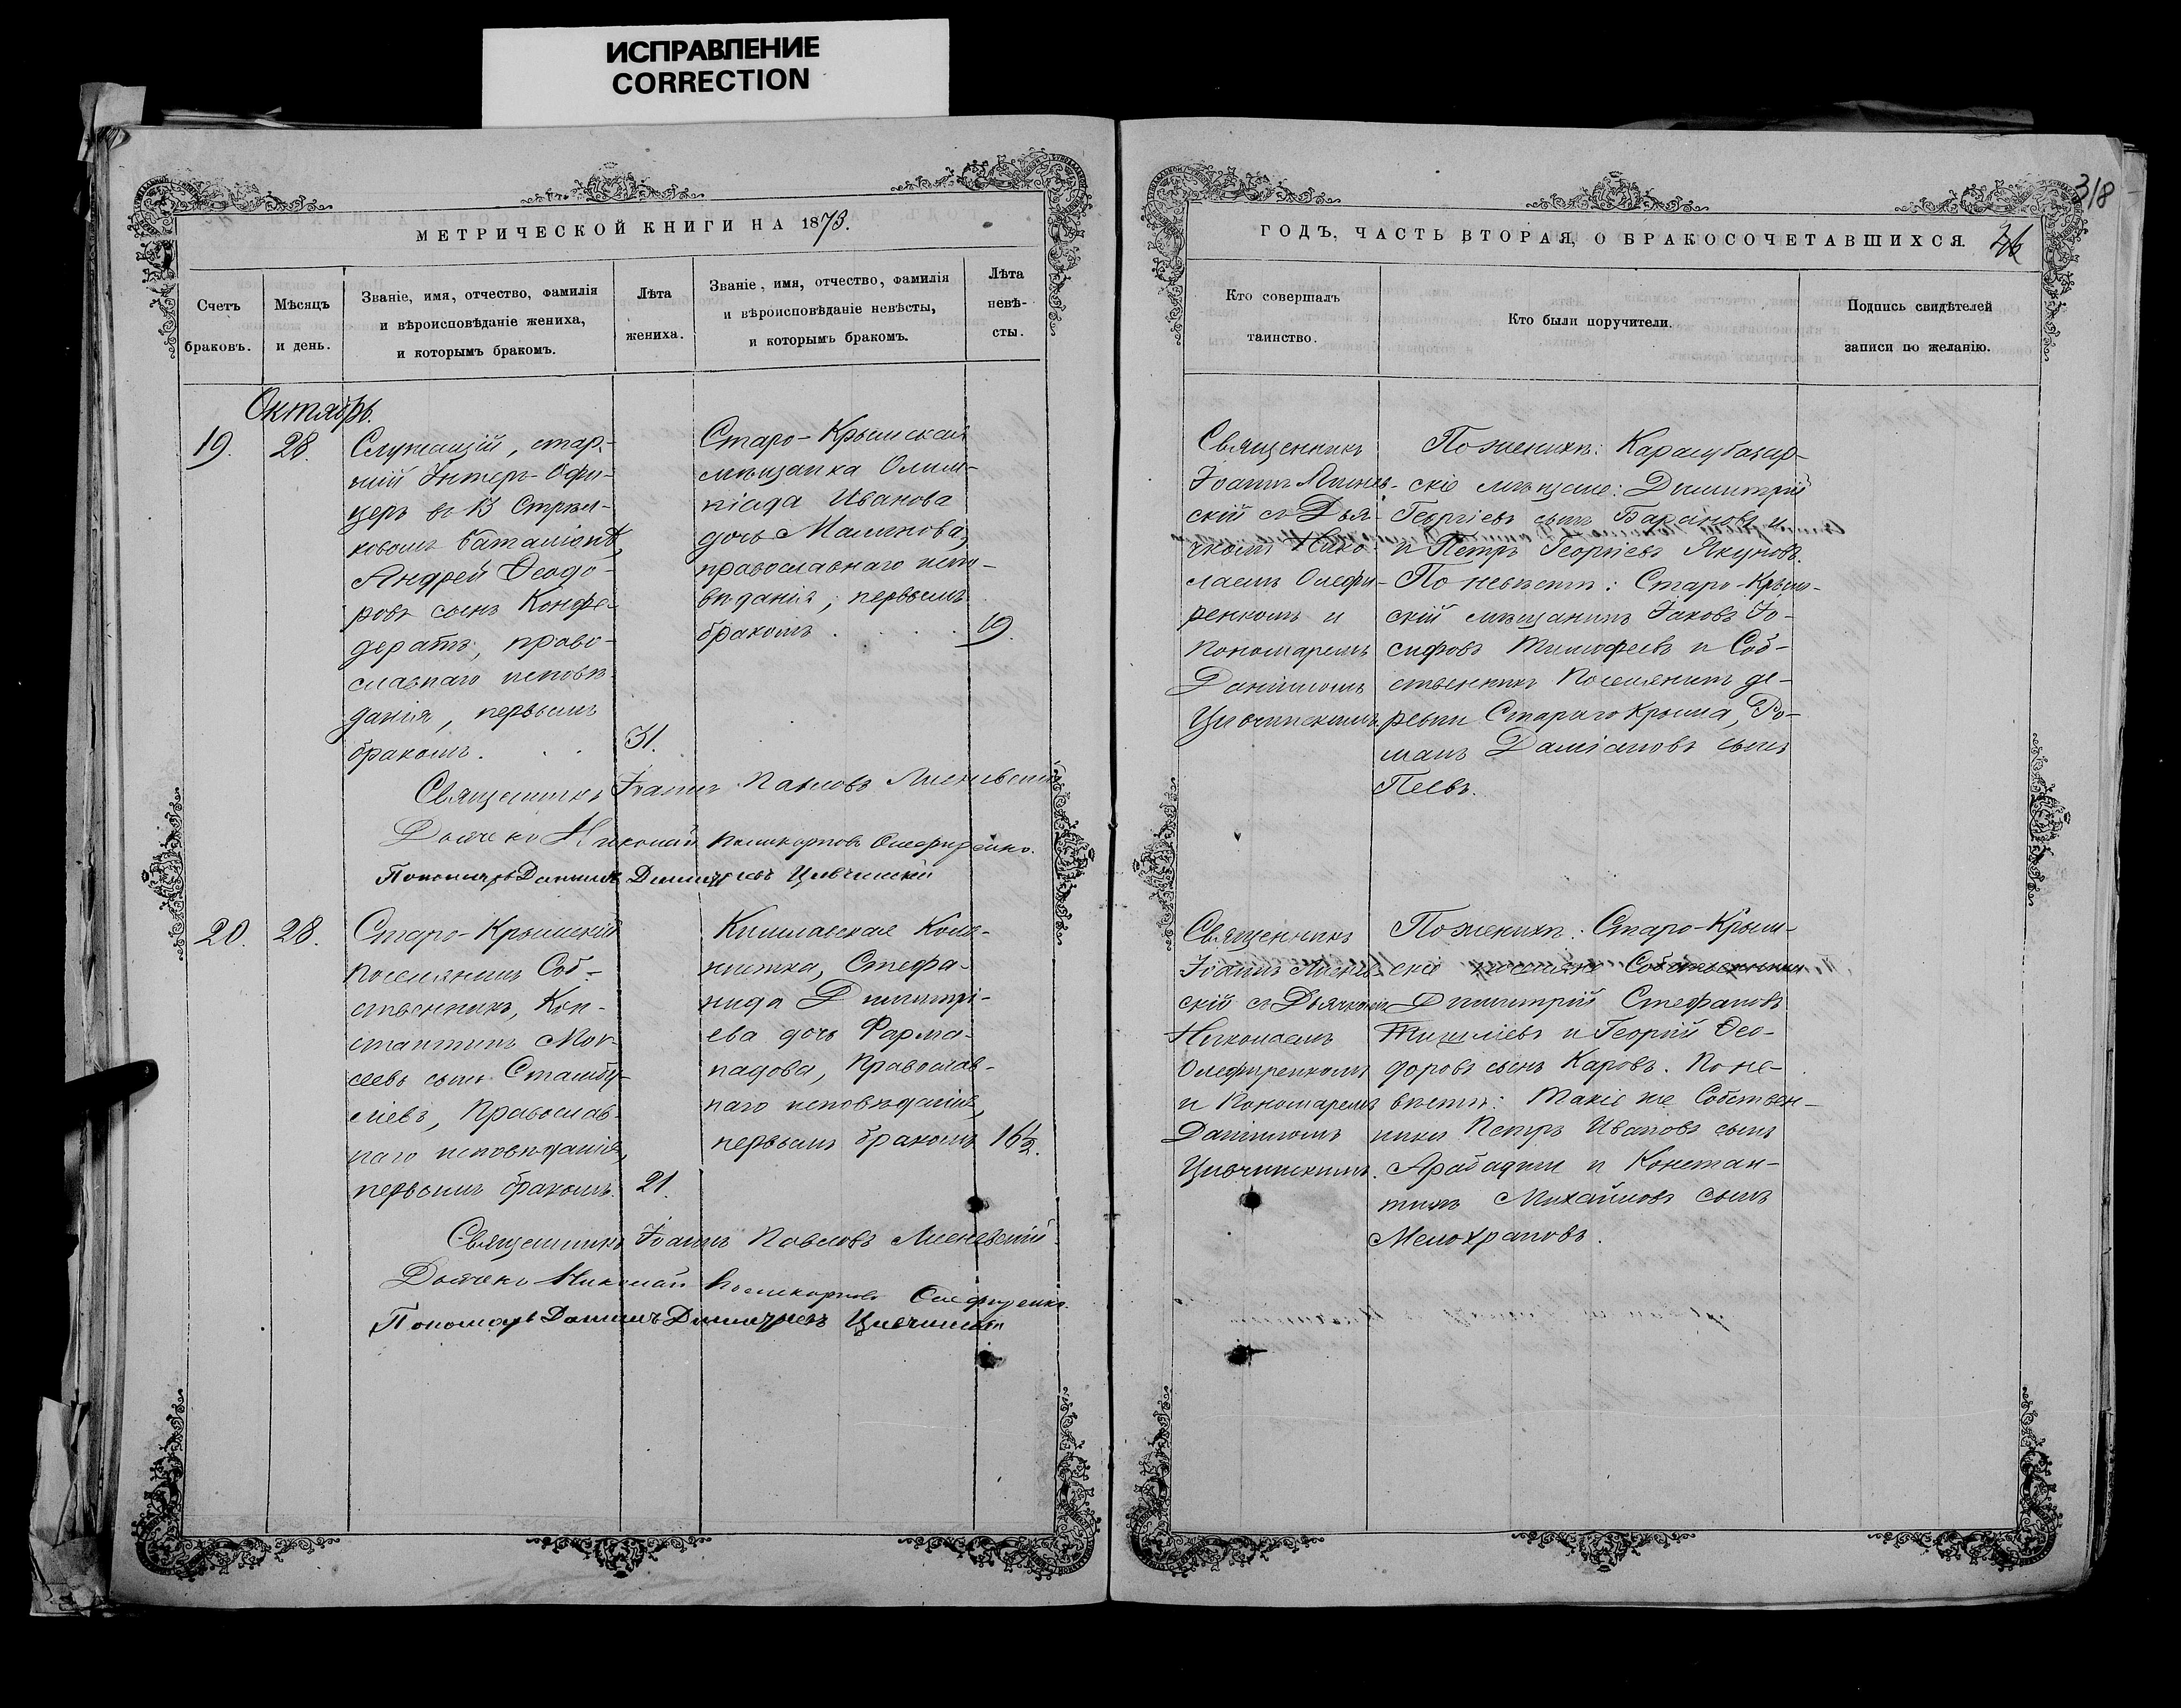 ИСПРАВЛЕНИЕ
CORRECTION
МЕТРИЧЕСКОЙ КНИГИ НА 1873.
Счетъ
браковъ.
Мѣсяцъ
и день.
Званіе, имя, отчество, фамилія
и вѣроисповѣданіе жениха,
и которымъ бракомъ.
Лѣта
жениха.
Званіе, имя, отчество, фамилія
и вѣроисповѣданіе невѣсты,
и которымъ бракомъ.
Лѣта
невѣ-
сты.
Октябрь.
19.
28.
Служащій, стар-
шій Унтеръ-Офи-
церъ въ 13 Стрѣл-
ковомъ баталіонѣ,
Андрей Ѳеодо-
ровъ сынъ Конфе-
дератъ, право-
славнаго исповѣ-
данія, первымъ
бракомъ.
31.
Старо-Крымская
мѣщанка Олим-
піада Иванова
дочь Малинова,
православнаго испо-
вѣданія, первымъ
бракомъ
19.
Священникъ Іоаннъ Павловъ
Дьячекъ Николай Поликарповъ Олефиренко.
Пономарь Даниилъ Димитріевъ
20.
28.
Старо-Крымскій
поселянинъ Соб-
ственникъ, Кон-
стантинъ Мои-
сеевъ сынъ Стамбу-
ліевъ, Православ-
наго исповѣданія,
первымъ бракомъ.
21.
Кишлавская Коло-
нистка, Стефа-
нида Димитрі-
ева дочь Фарма-
надова, Православ-
наго исповѣданія,
первымъ бракомъ
16½.
Священникъ Іоаннъ Павловъ
Дьячекъ Николай Поликарповъ Олефиренко.
Пономарь Даниилъ Димитріевъ
318
ГОДЪ, ЧАСТЬ ВТОРАЯ, О БРАКОСОЧЕТАВШИХСЯ.
Кто совершалъ
таинство.
Кто были поручители.
Подпись свидѣтелей
записи по желанію.
Священникъ
Іоаннъ
скій съ Дья-
чкомъ Нико-
лаемъ Олефи-
ренкомъ и
Пономаремъ
Данииломъ
По женихѣ: Карасубазар-
скіе мѣщане: Димитрій
Георгіевъ сынъ Барановъ и
и Петръ Георгіевъ Якуновъ.
По невѣстѣ: Старо-Крым-
скій мѣщанинъ Іаковъ Іо-
сифовъ Тимофеевъ и Соб-
ственникъ Поселянинъ де-
ревни Стараго Крыма, Ро-
манъ Даміановъ сынъ
Пеевъ.
Священникъ
Іоаннъ
скій съ Дьячкомъ
Николаемъ
Олефиренкомъ
и Пономаремъ
Данииломъ
По женихѣ: Старо-Крым-
скіе поселяне Собственники
Димитрій Стефановъ
и Георгій Ѳео-
доровъ сынъ Каровъ. По не-
вѣстѣ: Такіе же Собствен-
ники Петръ Ивановъ сынъ
Арабаджи и Констан-
тинъ Михайловъ сынъ
Мелохрановъ.